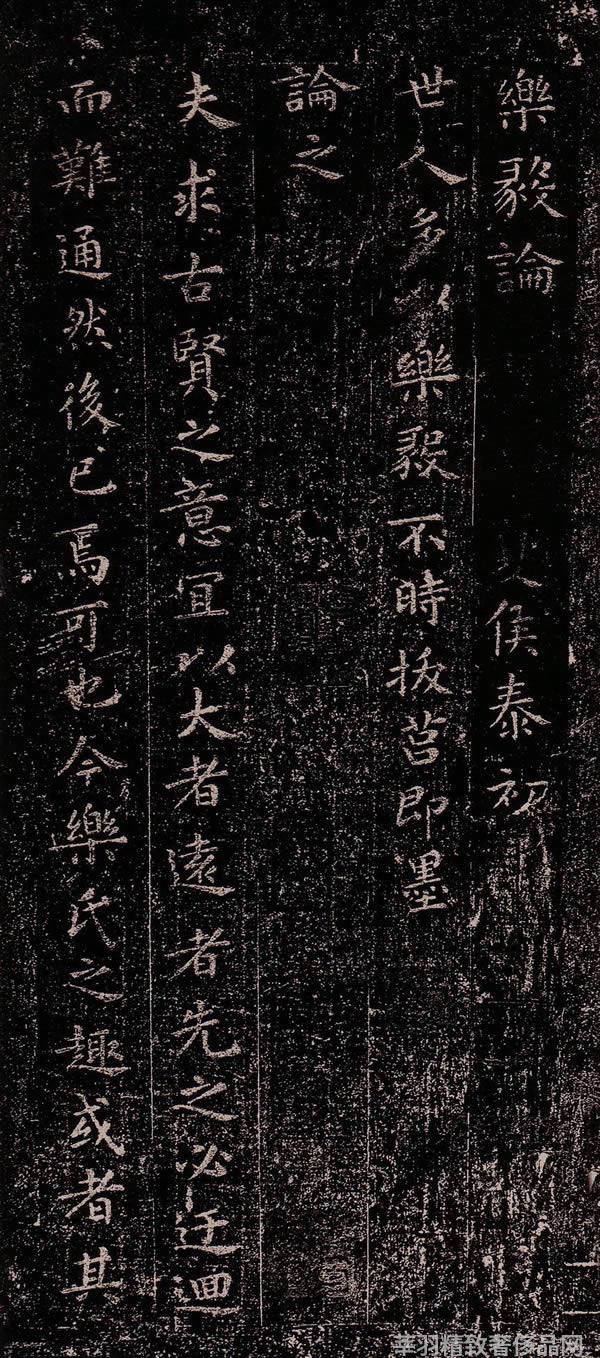 樂毅論 夏侯泰初
世人多以樂毅不時拔莒即墨
論之
夫求古賢之意宜以大者遠者先之必迂迴
而難通然後已焉可也今樂氏之趣或者其
莘羽精致奢侈品网